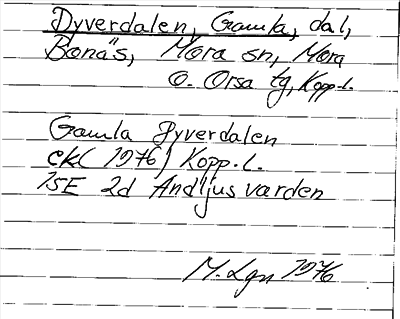 Dyverdalen, Gamla, dal,
Bonäs, Mora sn, Mora
o. Orsa tg, Kopp.l.
Gamla Dyverdalen
ek (1976) Kopp.l.
15E 2d Andljusvarden
M. Lgn 1976